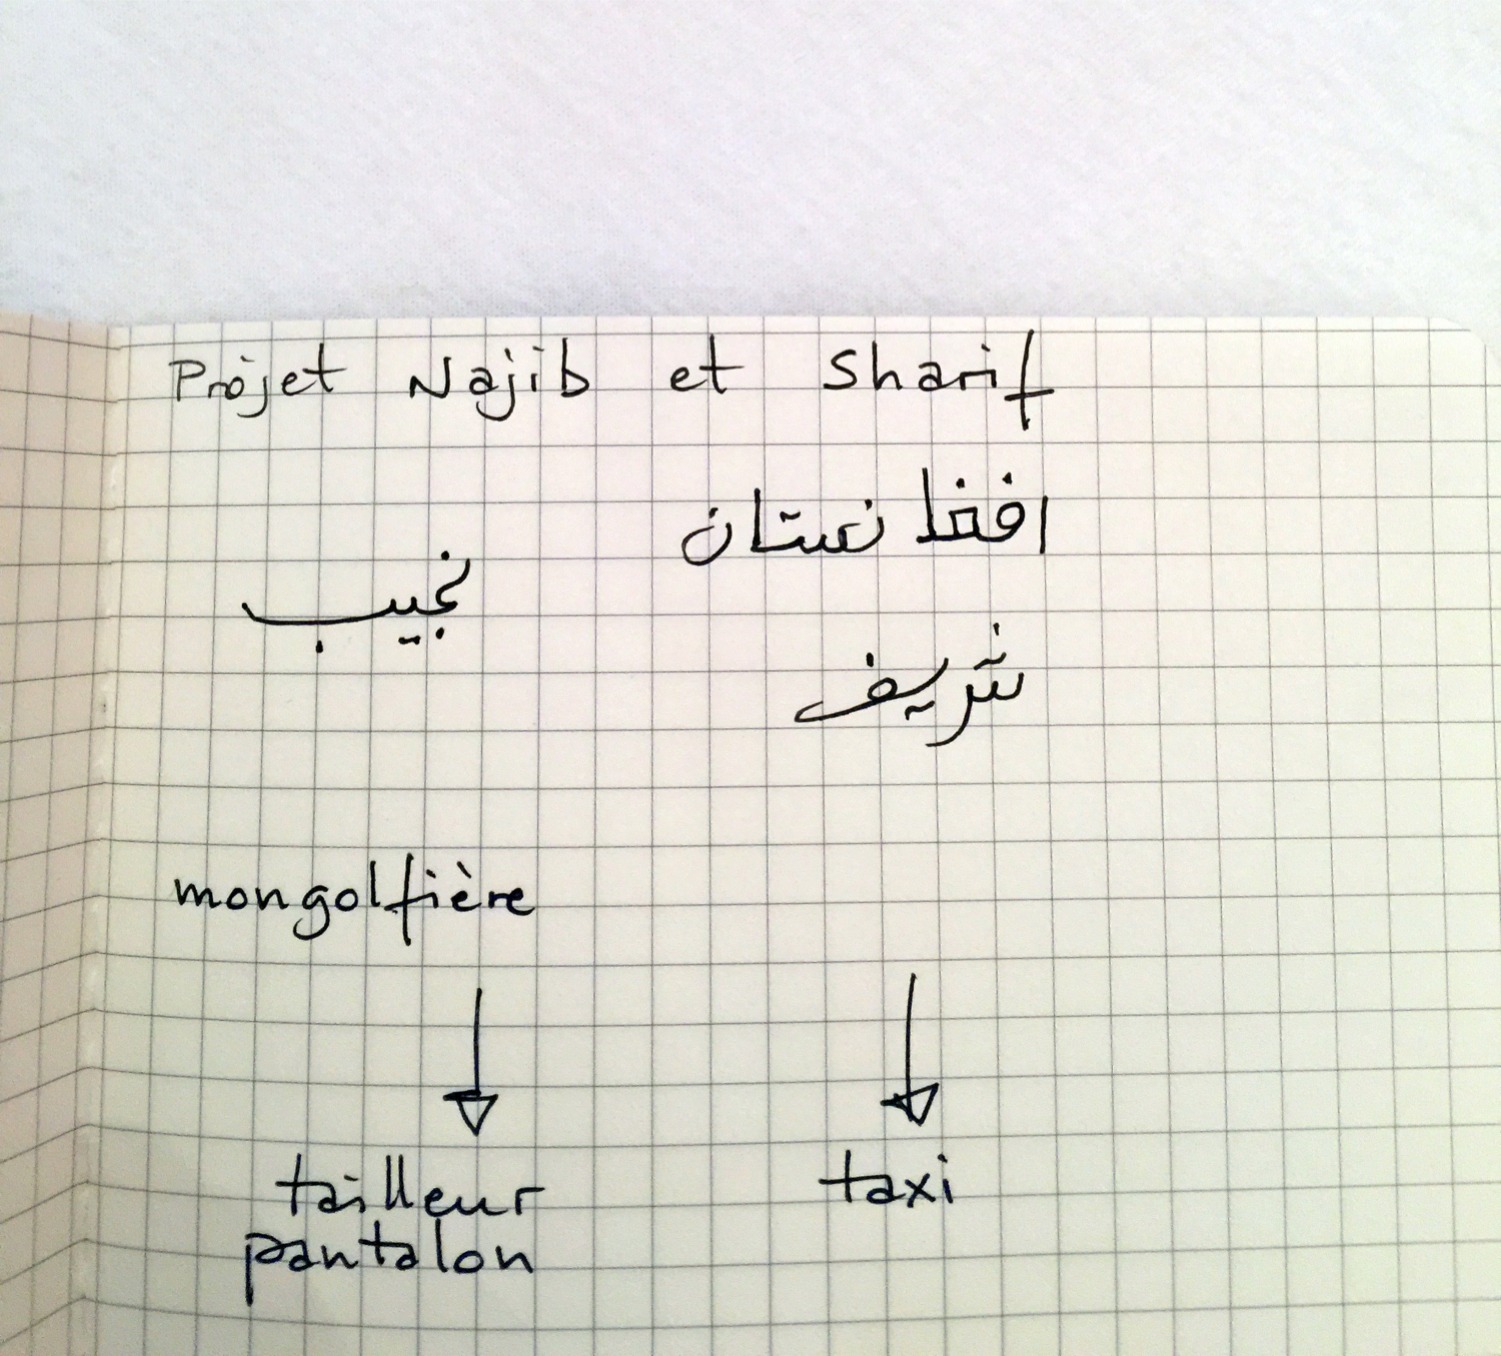 Projet Najib et Sharif
افغانستان
نجيب
شريف
mongolfière
tailleur
pantalon
taxi